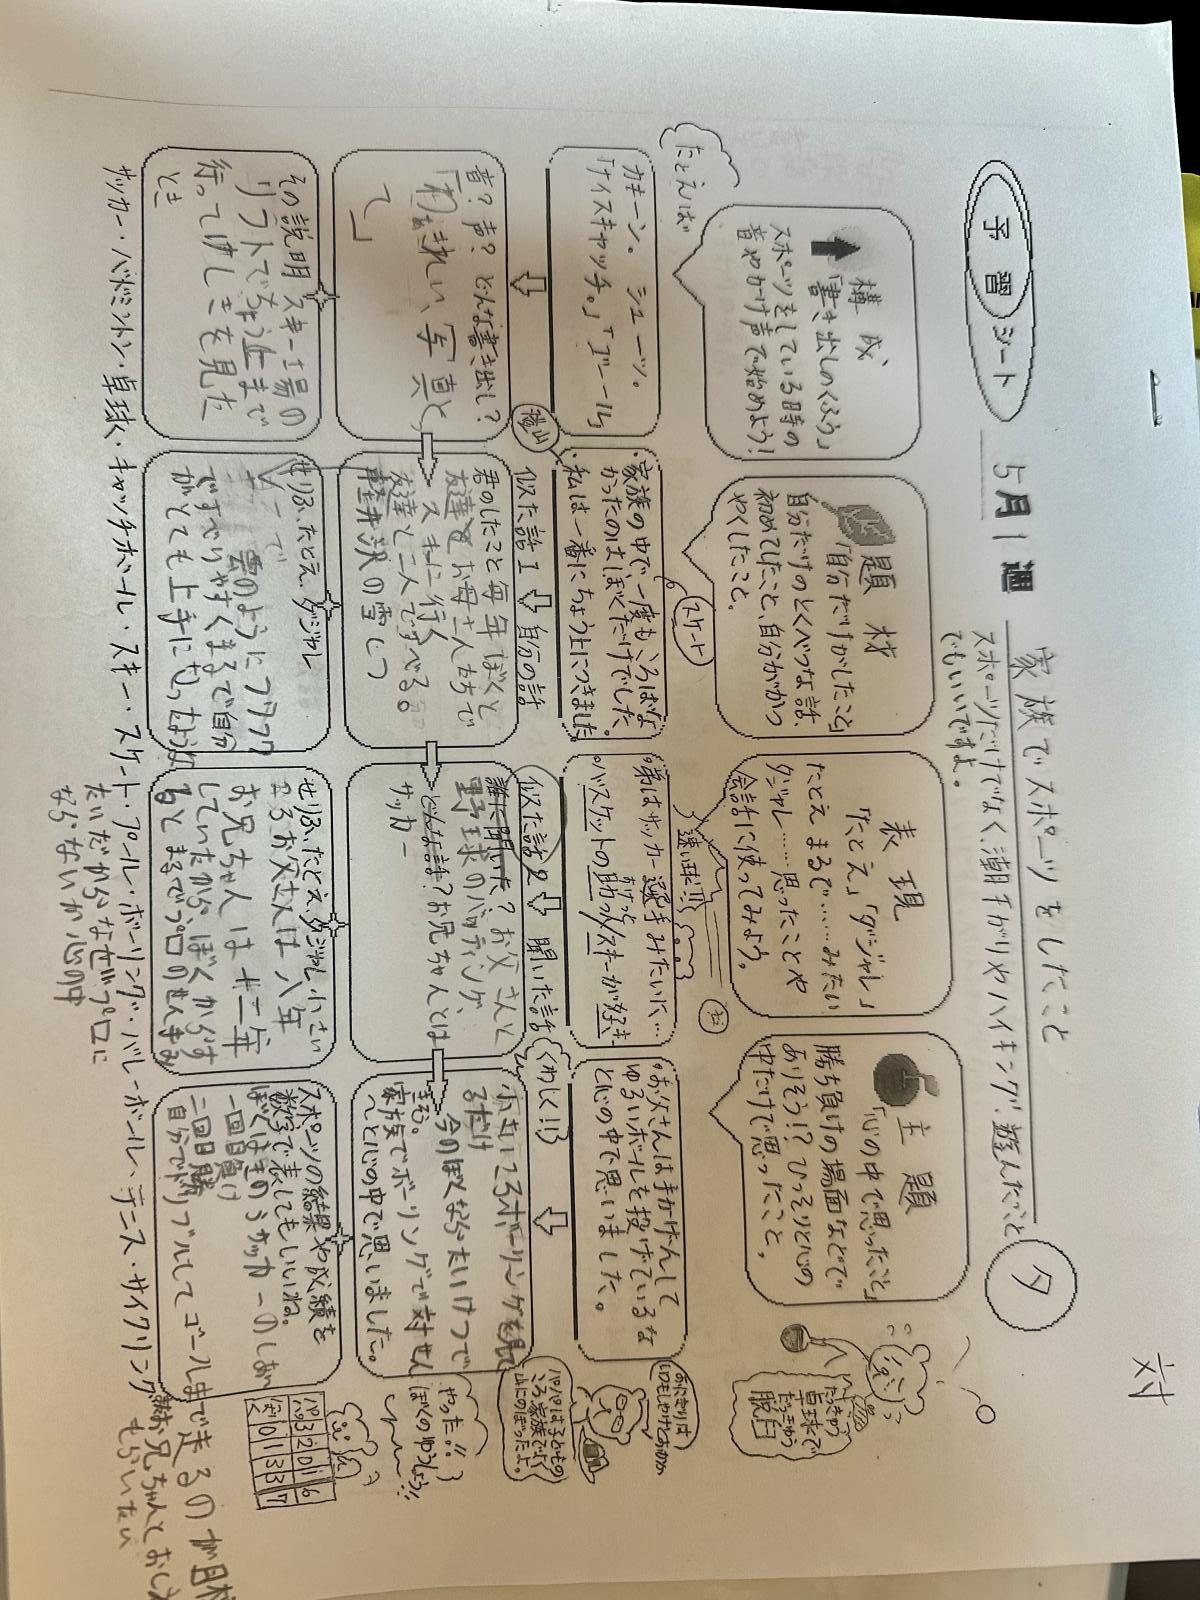 予習シート 5月1週 家族でスポーツをしたこと タ
スポーツだけでなく、潮干がりやハイキング、遊んだこと
でもいいですよ。
対
構成
「書き出しのくふう」
スポーツをしている時の
音やかけ声で始めよう!
題材
「自分だけがしたこと」
自分だけのとくべつな話、
初めてしたこと、自分がかつ
やくしたこと。
表現
「たとえ」「ダジャレ」
たとえ まるで……みたい
ダジャレ……思ったことや
会話に使ってみよう。
主題
「心の中で思ったこと」
勝ち負けの場面などで
ありそう!? ひっそりと心の
中だけで思ったこと。
卓球で
脱臼
たとえば
カキーン。シューッ。
「ナイスキャッチ。」「ゴール」
スケート
・家族の中で一度もころばな
かったのはぼくだけでした。
・私は一番にちょう上につきました
登山
速い球!!
・弟はサッカー選手みたいに…
・バスケットの助っ人/スキーが好き
・お父さんは手かげんして
ゆるいボールを投げているな
と心の中で思いました。
音?声?どんな書き出し?
「わぁきれい、写真とっ
て」
似た話1 自分の話
君のしたこと 毎年ぼくと
友達とお母さんたちで
スキーに行く
友達と二人ですべる。
軽井沢の雪しつ
似た話2 聞いた話
誰に聞いた?お父さんと
野球のバッティング、
どんな話?お兄ちゃんとは
サッカー
くわしく!!
小さいころボーリングを見て
るだけ
今のぼくならたいけつで
きそう。
家族でボーリングで対せん
へと心の中で思いました。
パパは子どもの
ころ家族でよく
山にのぼったよ。
やった!!
ぼくのゆうしょう!!
その説明 スキー場の
リフトでちょう上まで
行ってけしきを見た
とき
せりふ、たとえ、ダジャレ
雪のようにフワフワ
ですべりやすくまるで自分
がとても上手になったようだ
せりふ、たとえ、ダジャレ 小さい
ころお父さんは八年
お兄ちゃんは十二年
していたからぼくからす
ると まるでプロのせんしゅみ
たいだからなぜプロに
ならないか心の中
スポーツの結果や成績を
数字で表してもいいね。
ぼくはきのうサッカーのしあい
一回負け
二回勝ち
自分でドリブルしてゴールまで走るのが目標
サッカー・バドミントン・卓球・キャッチボール・スキー・スケート・プール・ボーリング・バレーボール・テニス・サイクリング